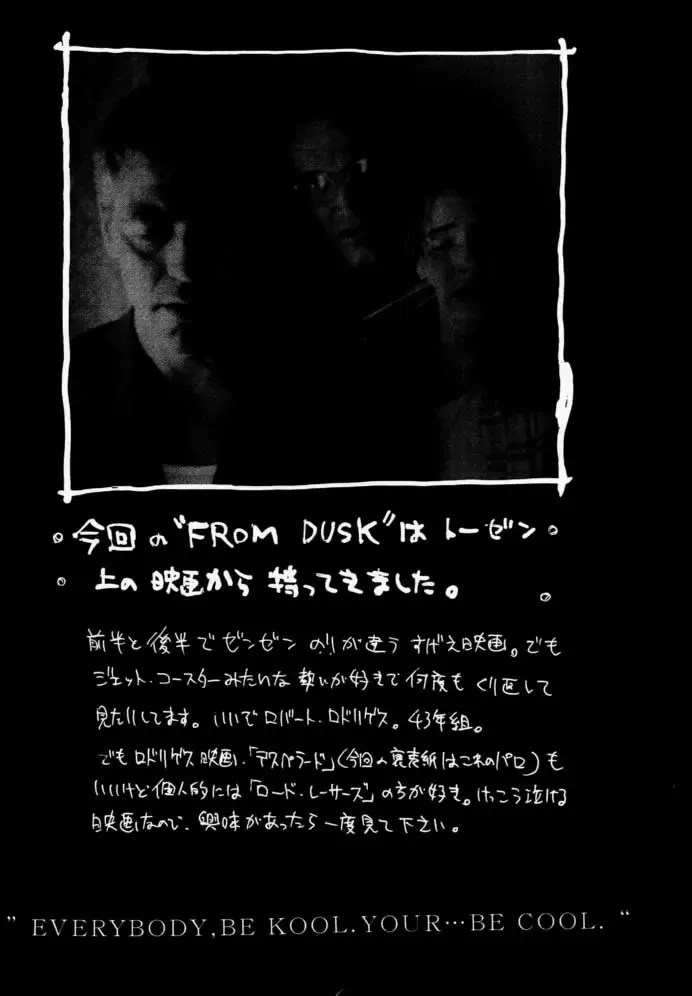 今回の“FROM DUSK”はトーゼン
上の映画から持ってきました。
前半と後半でゼンゼンノリが違うすげえ映画。でも
ジェット・コースターみたいな勢いが好きで何度もくり返して
見たりしてます。いいでロバート・ロドリゲス。43年組。
でもロドリゲス映画.「デスペラード」(今回の裏表紙はこれのパロ)も
いいけど個人的には「ロード・レーサーズ」の方が好き。けっこう泣ける
映画なので、興味があったら一度見て下さい。
” EVERYBODY,BE KOOL.YOUR…BE COOL. “